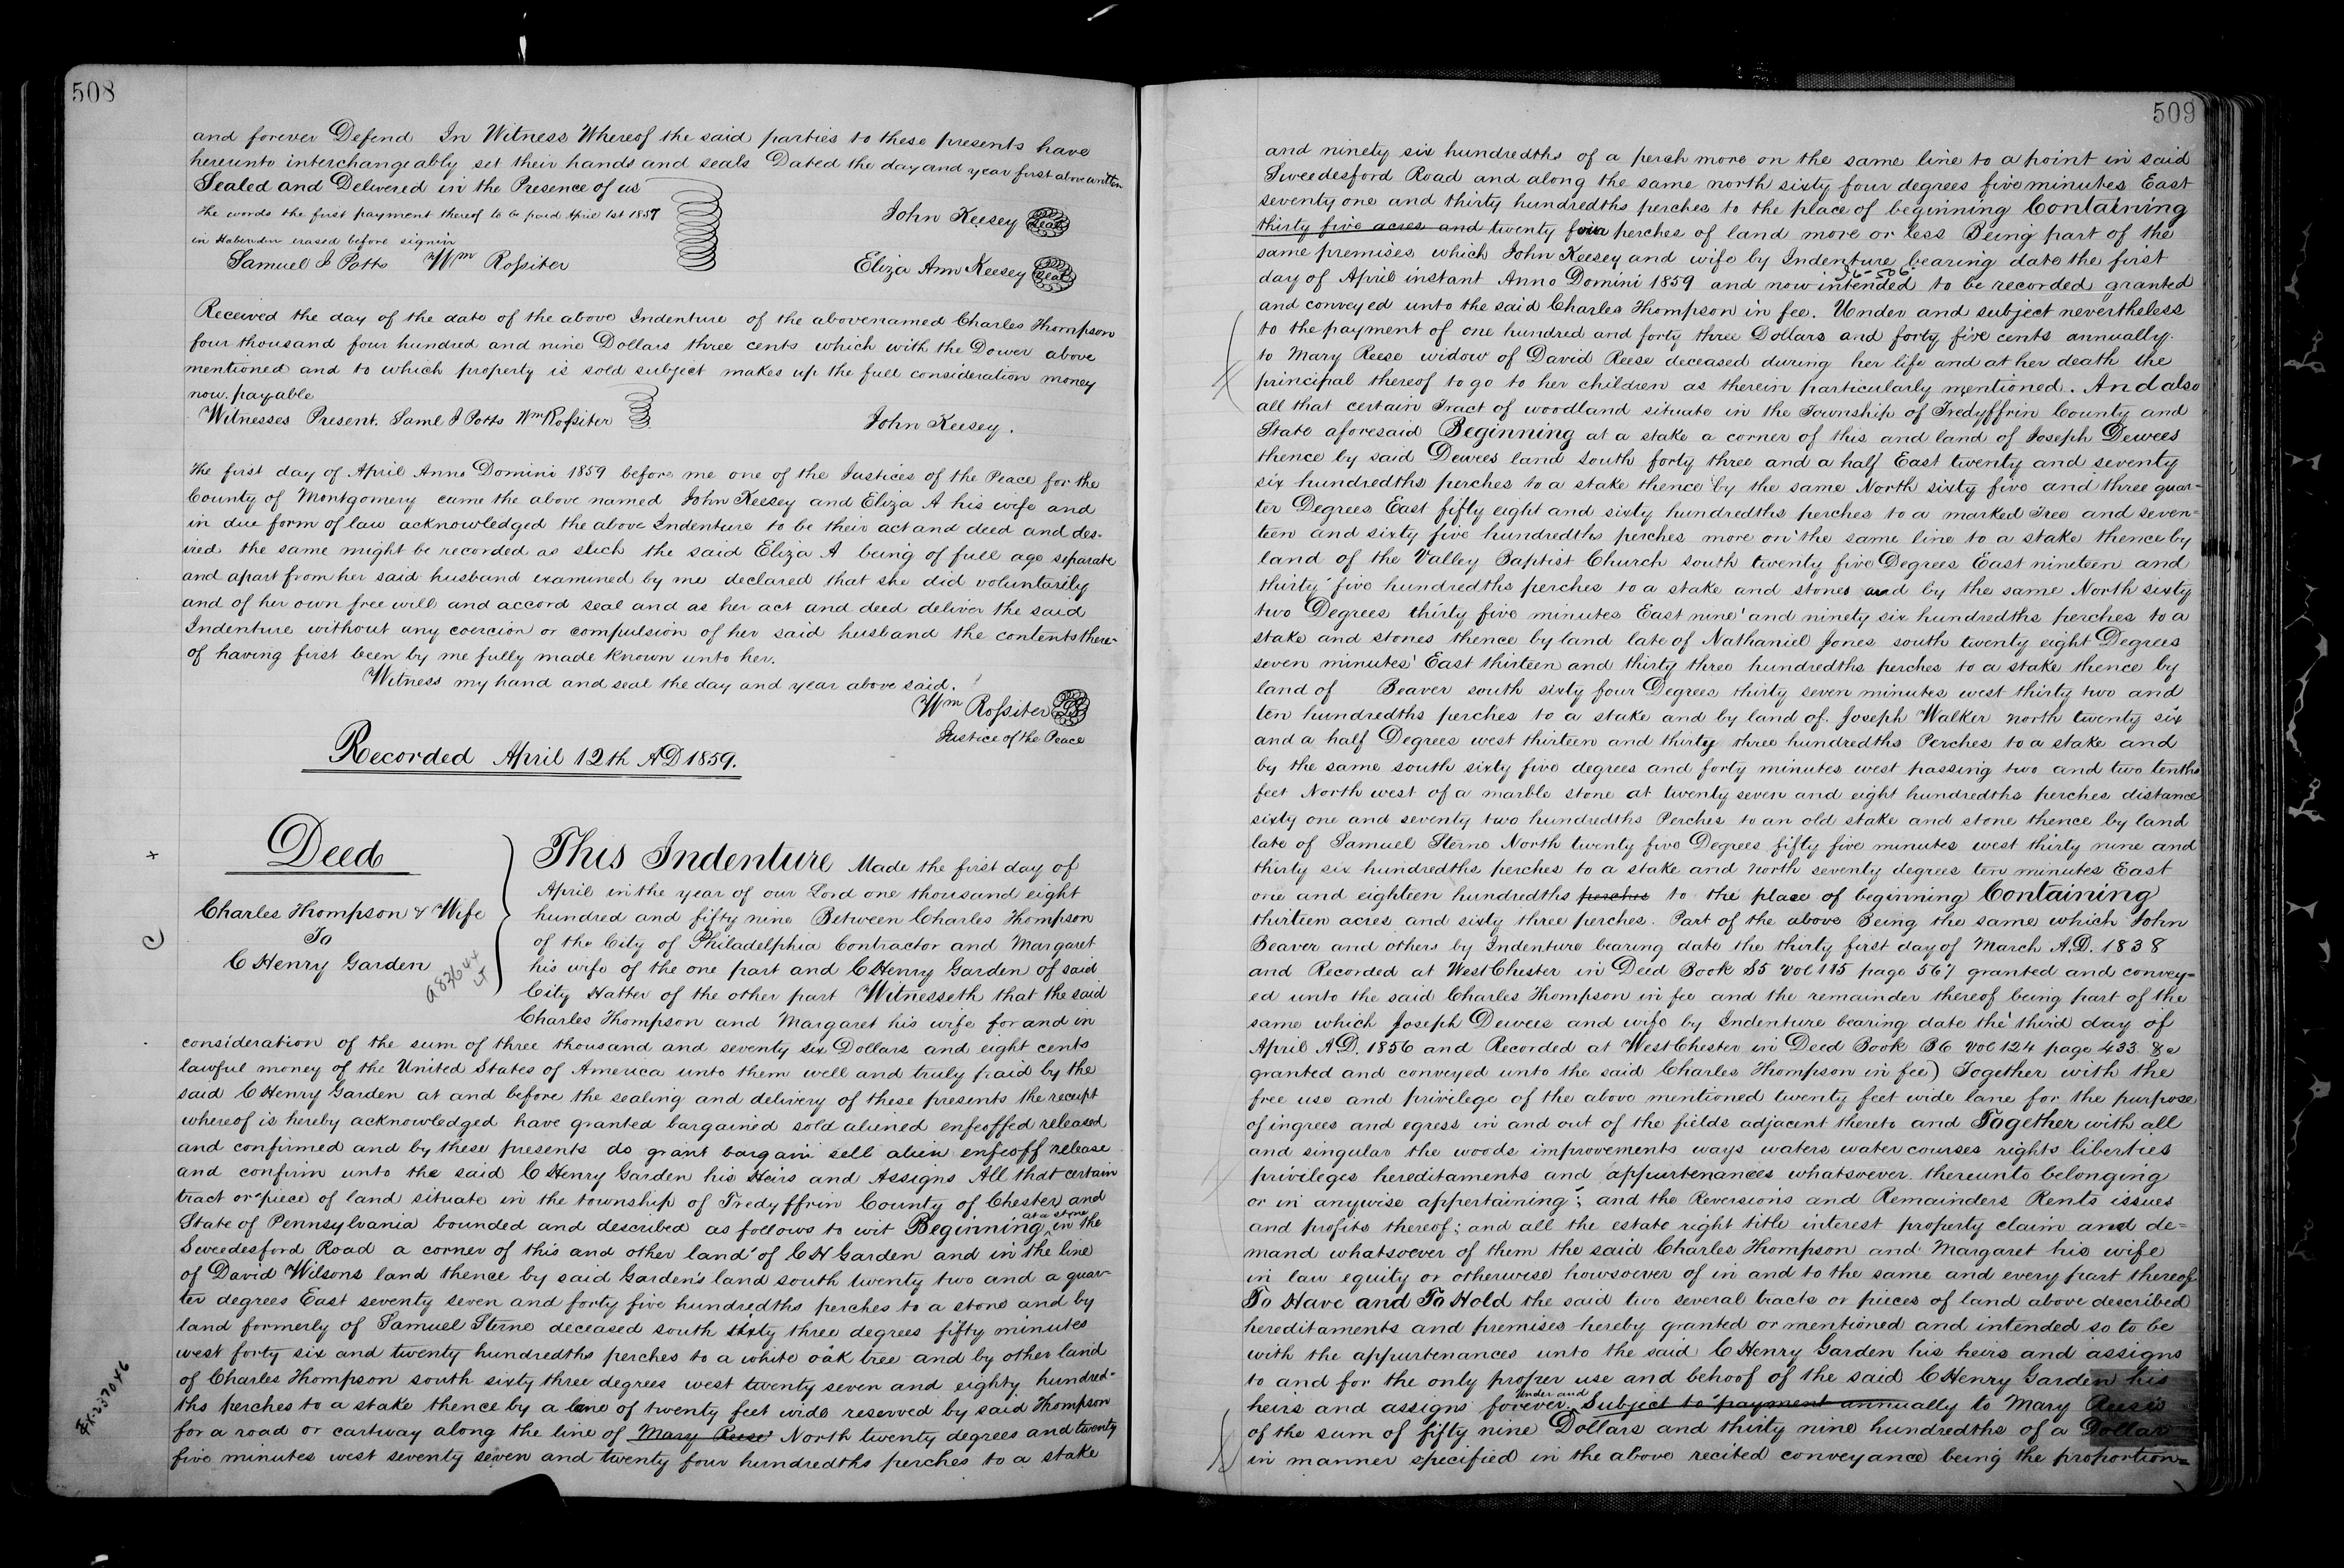 508
and forever Defend In Witness Whereof the said parties to these presents have
hereunto interchangeably set their hands and seals Dated the day and year first above written
Sealed and Delivered in the Presence of us
The words the first payment thereof to be paid April 1st 1857
in Habendum erased before signin
Samuel J Potts Wm Rossiter
John Keesey Seal
Eliza Ann Keesey Seal
Received the day of the date of the above Indenture of the abovenamed Charles Thompson
four thousand four hundred and nine Dollars three cents which with the Dower above
mentioned and to which property is sold subject makes up the full consideration money
now payable
Witnesses Present. Saml J Potts Wm Rossiter
John Keesey.
The first day of April Anno Domini 1859 before me one of the Justices of the Peace for the
County of Montgomery came the above named John Keesey and Eliza A his wife and
in due form of law acknowledged the above Indenture to be their act and deed and des-
ired the same might be recorded as such the said Eliza A being of full age separate
and apart from her said husband examined by me declared that she did voluntarily
and of her own free will and accord seal and as her act and deed deliver the said
Indenture without any coercion or compulsion of her said husband the contents there-
of having first been by me fully made known unto her.
Witness my hand and seal the day and year above said.
Wm Rossiter
Justice of the Peace
Recorded April 12th AD 1859.
Deed
Charles Thompson & Wife
To
C Henry Garden
This Indenture Made the first day of
April in the year of our Lord one thousand eight
hundred and fifty nine Between Charles Thompson
of the City of Philadelphia Contractor and Margaret
his wife of the one part and C Henry Garden of said
City Hatter of the other part Witnesseth that the said
Charles Thompson and Margaret his wife for and in
consideration of the sum of three thousand and seventy six Dollars and eight cents
lawful money of the United States of America unto them well and truly paid by the
said C Henry Garden at and before the sealing and delivery of these presents the receipt
whereof is hereby acknowledged have granted bargained sold aliened enfeoffed released
and confirmed and by these presents do grant bargain sell alien enfeoff release
and confirm unto the said C Henry Garden his Heirs and Assigns All that certain
tract or piece of land situate in the township of Tredyffrin County of Chester and
State of Pennsylvania bounded and described as follows to wit Beginning at a stone in the
Sweedesford Road a corner of this and other land of C H Garden and in the line
of David Wilsons land thence by said Garden's land south twenty two and a quar-
ter degrees East seventy seven and forty five hundredths perches to a stone and by
land formerly of Samuel Sterne deceased south sixty three degrees fifty minutes
west forty six and twenty hundredths perches to a white oak tree and by other land
of Charles Thompson south sixty three degrees west twenty seven and eighty hundred-
ths perches to a stake thence by a lane of twenty feet wide reserved by said Thompson
for a road or cartway along the line of Mary Reese North twenty degrees and twenty
five minutes west seventy seven and twenty four hundredths perches to a stake
509
and ninety six hundredths of a perch more on the same line to a point in said
Sweedesford Road and along the same north sixty four degrees five minutes East
seventy one and thirty hundredths perches to the place of beginning Containing
thirty five acres and twenty four perches of land more or less Being part of the
same premises which John Keesey and wife by Indenture bearing date the first
day of April instant Anno Domini 1859 and now intended to be recorded granted
and conveyed unto the said Charles Thompson in fee. Under and subject nevertheless
to the payment of one hundred and forty three Dollars and forty five cents annually
to Mary Reese widow of David Reese deceased during her life and at her death the
principal thereof to go to her children as therein particularly mentioned. And also
all that certain Tract of woodland situate in the Township of Tredyffrin County and
State aforesaid Beginning at a stake a corner of this and land of Joseph Dewees
thence by said Dewees land south forty three and a half East twenty and seventy
six hundredths perches to a stake thence by the same North sixty five and three quar-
ter Degrees East fifty eight and sixty hundredths perches to a marked Tree and seven-
teen and sixty five hundredths perches more on the same line to a stake thence by
land of the Valley Baptist Church south twenty five Degrees East nineteen and
thirty five hundredths perches to a stake and stones and by the same North sixty
two Degrees thirty five minutes East nine and ninety six hundredths perches to a
stake and stones thence by land late of Nathaniel Jones south twenty eight Degrees
seven minutes East thirteen and thirty three hundredths perches to a stake thence by
land of Beaver south sixty four Degrees thirty seven minutes west thirty two and
ten hundredths perches to a stake and by land of Joseph Walker north twenty six
and a half Degrees west thirteen and thirty three hundredths Perches to a stake and
by the same south sixty five degrees and forty minutes west passing two and two tenths
feet North west of a marble stone at twenty seven and eight hundredths perches distance
sixty one and seventy two hundredths Perches to an old stake and stone thence by land
late of Samuel Sterne North twenty five Degrees fifty five minutes west thirty nine and
thirty six hundredths perches to a stake and north seventy degrees ten minutes East
one and eighteen hundredths perches to the place of beginning Containing
thirteen acres and sixty three perches. Part of the above Being the same which John
Beaver and others by Indenture bearing date the thirty first day of March A.D. 1838
and Recorded at West Chester in Deed Book S5 Vol 115 page 567 granted and convey-
ed unto the said Charles Thompson in fee and the remainder thereof being part of the
same which Joseph Dewees and wife by Indenture bearing date the third day of
April A.D. 1856 and Recorded at West Chester in Deed Book B6 Vol 124 page 433 &c
granted and conveyed unto the said Charles Thompson in fee) Together with the
free use and privilege of the above mentioned twenty feet wide lane for the purpose
of ingres and egress in and out of the fields adjacent thereto and Together with all
and singular the woods improvements ways waters water courses rights liberties
privileges hereditaments and appurtenances whatsoever thereunto belonging
or in anywise appertaining; and the Reversions and Remainders Rents issues
and profits thereof; and all the estate right title interest property claim and de-
mand whatsoever of them the said Charles Thompson and Margaret his wife
in law equity or otherwise howsoever of in and to the same and every part thereof
To Have and To Hold the said two several tracts or pieces of land above described
hereditaments and premises hereby granted or mentioned and intended so to be
with the appurtenances unto the said C Henry Garden his heirs and assigns
to and for the only proper use and behoof of the said C Henry Garden his
heirs and assigns forever. Under and Subject to payment annually to Mary Reese
of the sum of fifty nine Dollars and thirty nine hundredths of a Dollar
in manner specified in the above recited conveyance being the proportion-